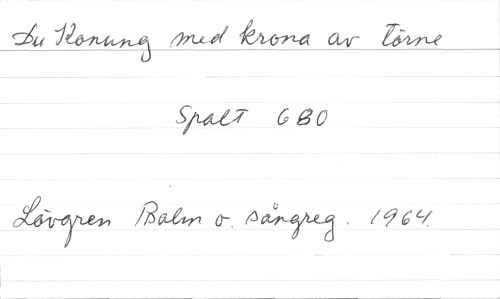 Du Konung med krona av törne
Spalt 680
Lövgren Psalm o. sångreg. 1964.